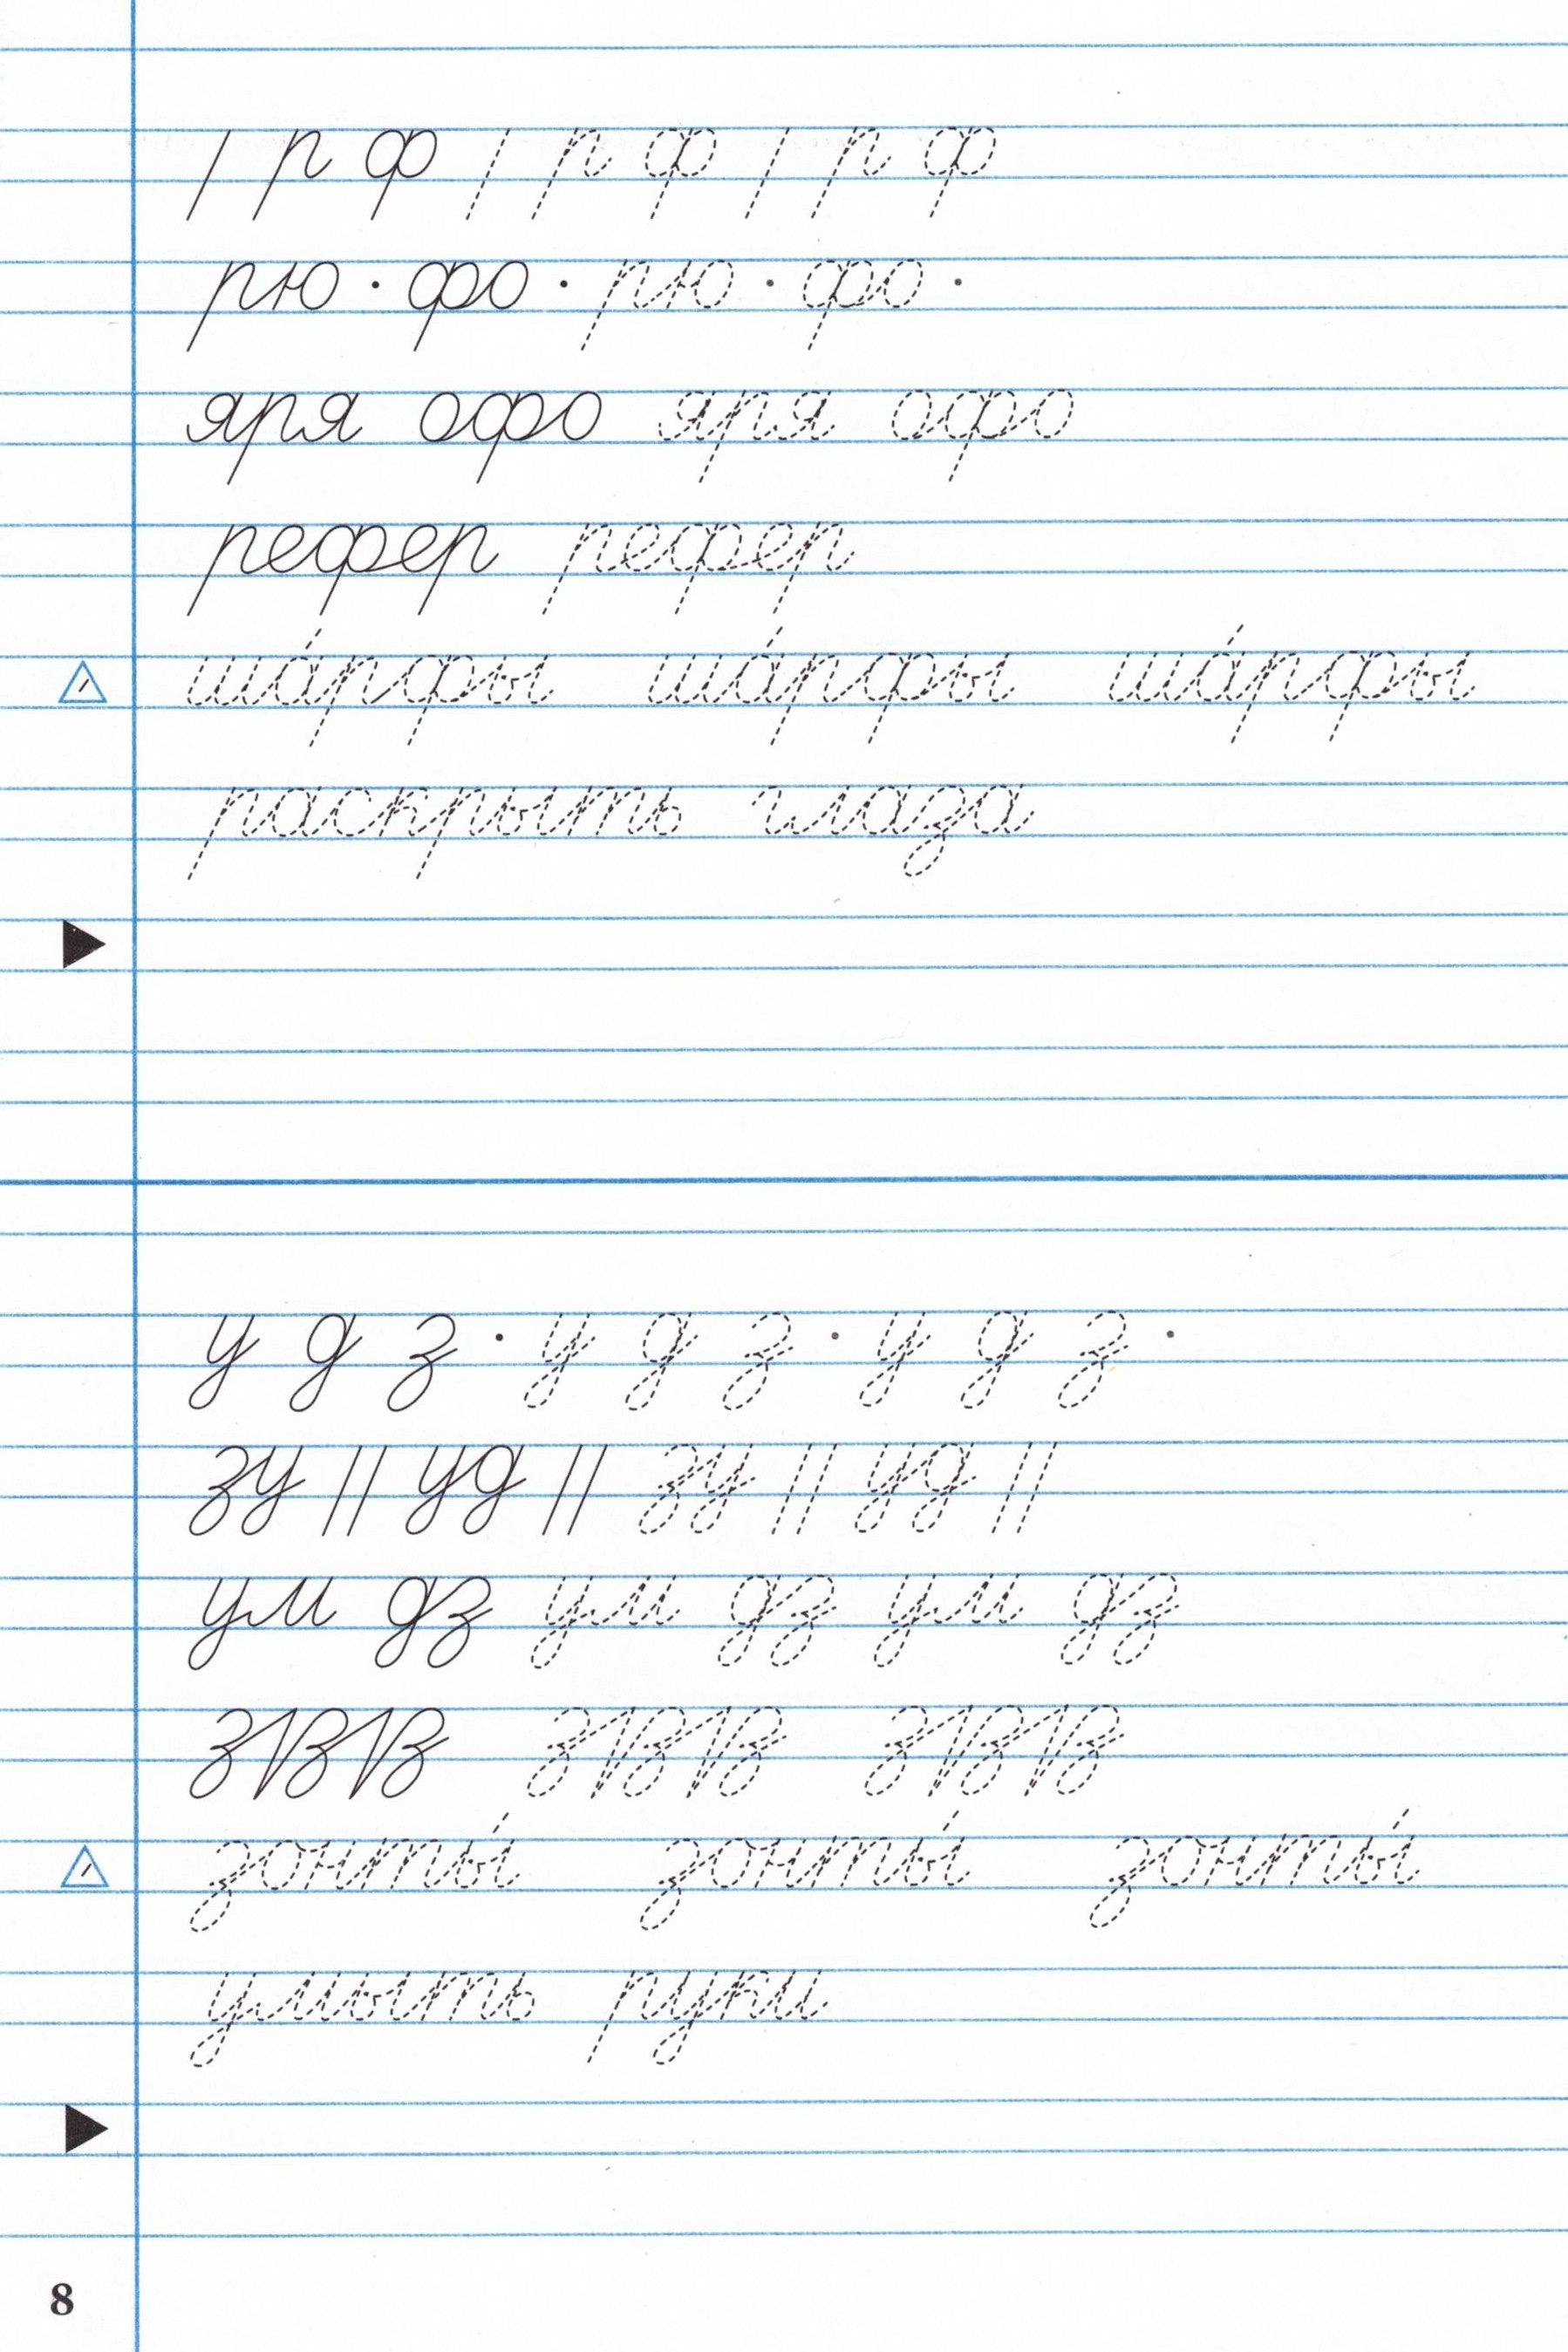 / р ф / р ф / р ф
рю · фо · рю · фо ·
яря офо яря офо
рефер рефер
ша́рфы ша́рфы ша́рфы
раскрыть глаза
у д з · у д з · у д з ·
зу // уд // зу // уд //
ум дз ум дз ум дз
зонты́ зонты́ зонты́
умыть руки
8